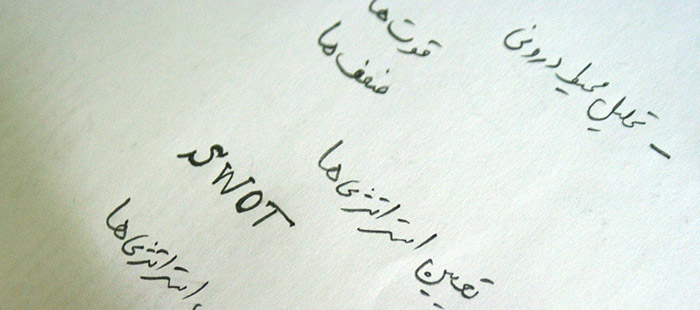 - تحلیل محیط درونی
قوت‌ها
ضعف‌ها
تعیین استراتژی‌ها
SWOT
استراتژی‌ها